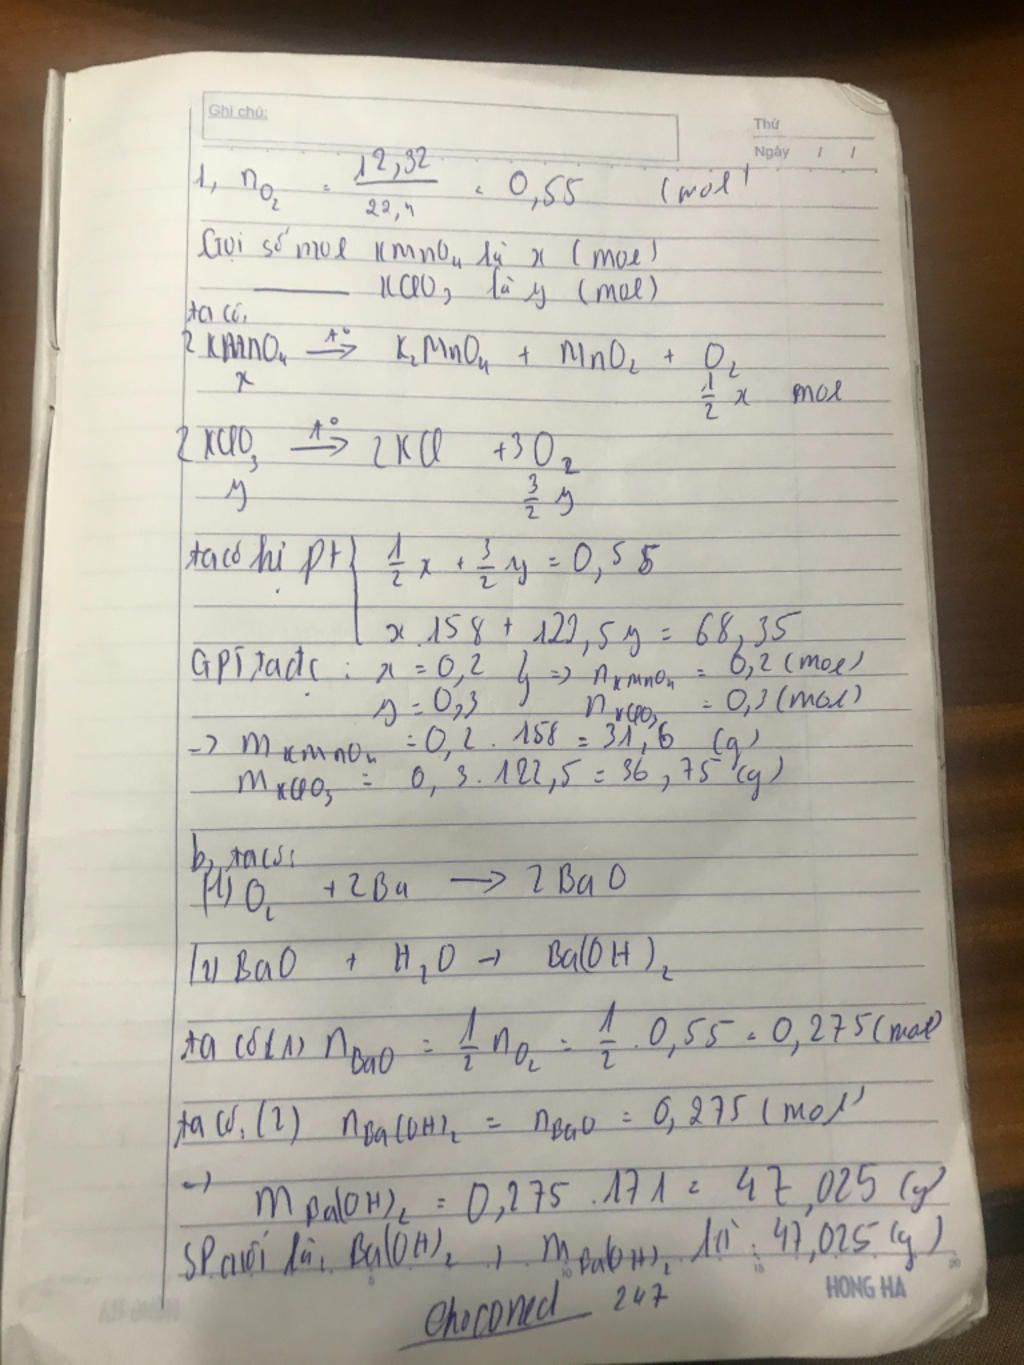 Ghi chú:
Thứ
Ngày / /
1, nO₂ = 12,32 / 22,4 = 0,55 (mol)
Gọi số mol KMnO₄ là x (mol)
——— KClO₃ là y (mol)
ta có:
2KMnO₄ —t°→ K₂MnO₄ + MnO₂ + O₂
x 1/2 x mol
2KClO₃ —t°→ 2KCl + 3O₂
y 3/2 y
ta có hệ pt { 1/2 x + 3/2 y = 0,55
x.158 + 122,5y = 68,35
GPT, ta đc : x = 0,2 } => nKMnO₄ = 0,2 (mol)
y = 0,3 nKClO₃ = 0,3 (mol)
-> mKMnO₄ = 0,2 . 158 = 31,6 (g)
mKClO₃ = 0,3 . 122,5 = 36,75 (g)
b, ta có:
(1) O₂ + 2Ba → 2BaO
(2) BaO + H₂O → Ba(OH)₂
ta có (1) nBaO = 1/2 nO₂ = 1/2 . 0,55 = 0,275 (mol)
ta có: (2) nBa(OH)₂ = nBaO = 0,275 (mol)
-> mBa(OH)₂ = 0,275 . 171 = 47,025 (g)
SP cuối là: Ba(OH)₂ , mBa(OH)₂ là : 47,025 (g)
HONG HA
Choconed 247